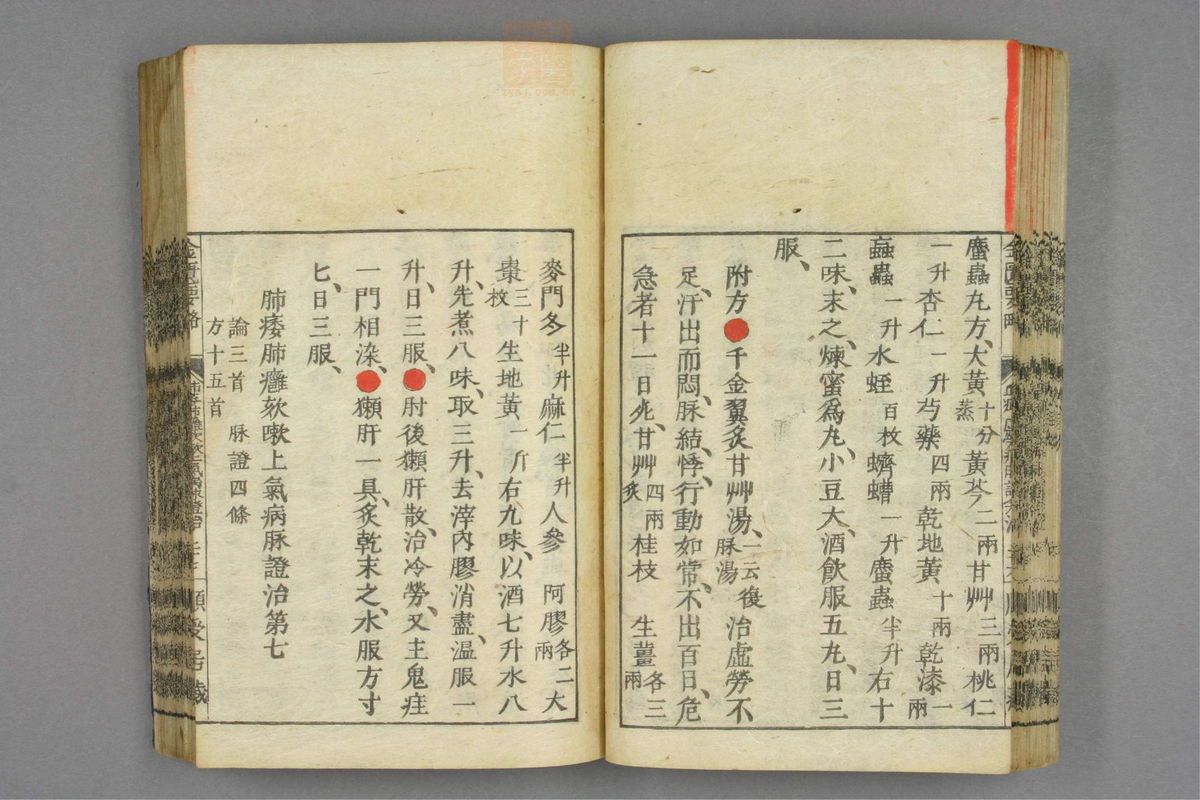 䗪蟲丸方、大黃十分蒸黃芩二兩甘艸三兩桃仁
一升杏仁一升芍藥四兩乾地黃十兩乾漆一兩
蝱蟲一升水蛭百枚蠐螬一升䗪蟲半升右十
二味、末之、煉蜜爲丸、小豆大、酒飮服五丸、日三
服、
附方●千金翼炙甘艸湯、一云復脉湯治虛勞不
足、汗出而悶、脉結、悸、行動如常、不出百日、危
急者十一日死、甘艸四兩炙桂枝 生薑各三兩
麥門冬半升麻仁半升人參 阿膠各二兩大
棗三十枚生地黃一斤右九味、以酒七升水八
升、先煮八味、取三升、去滓內膠消盡、温服一
升、日三服、●肘後獺肝散、治冷勞、又主鬼疰
一門相染、●獺肝一具、炙乾末之、水服方寸
匕、日三服、
肺痿肺癰欬嗽上氣病脉證治第七
論三首 脉證四條
方十五首
金匱要略